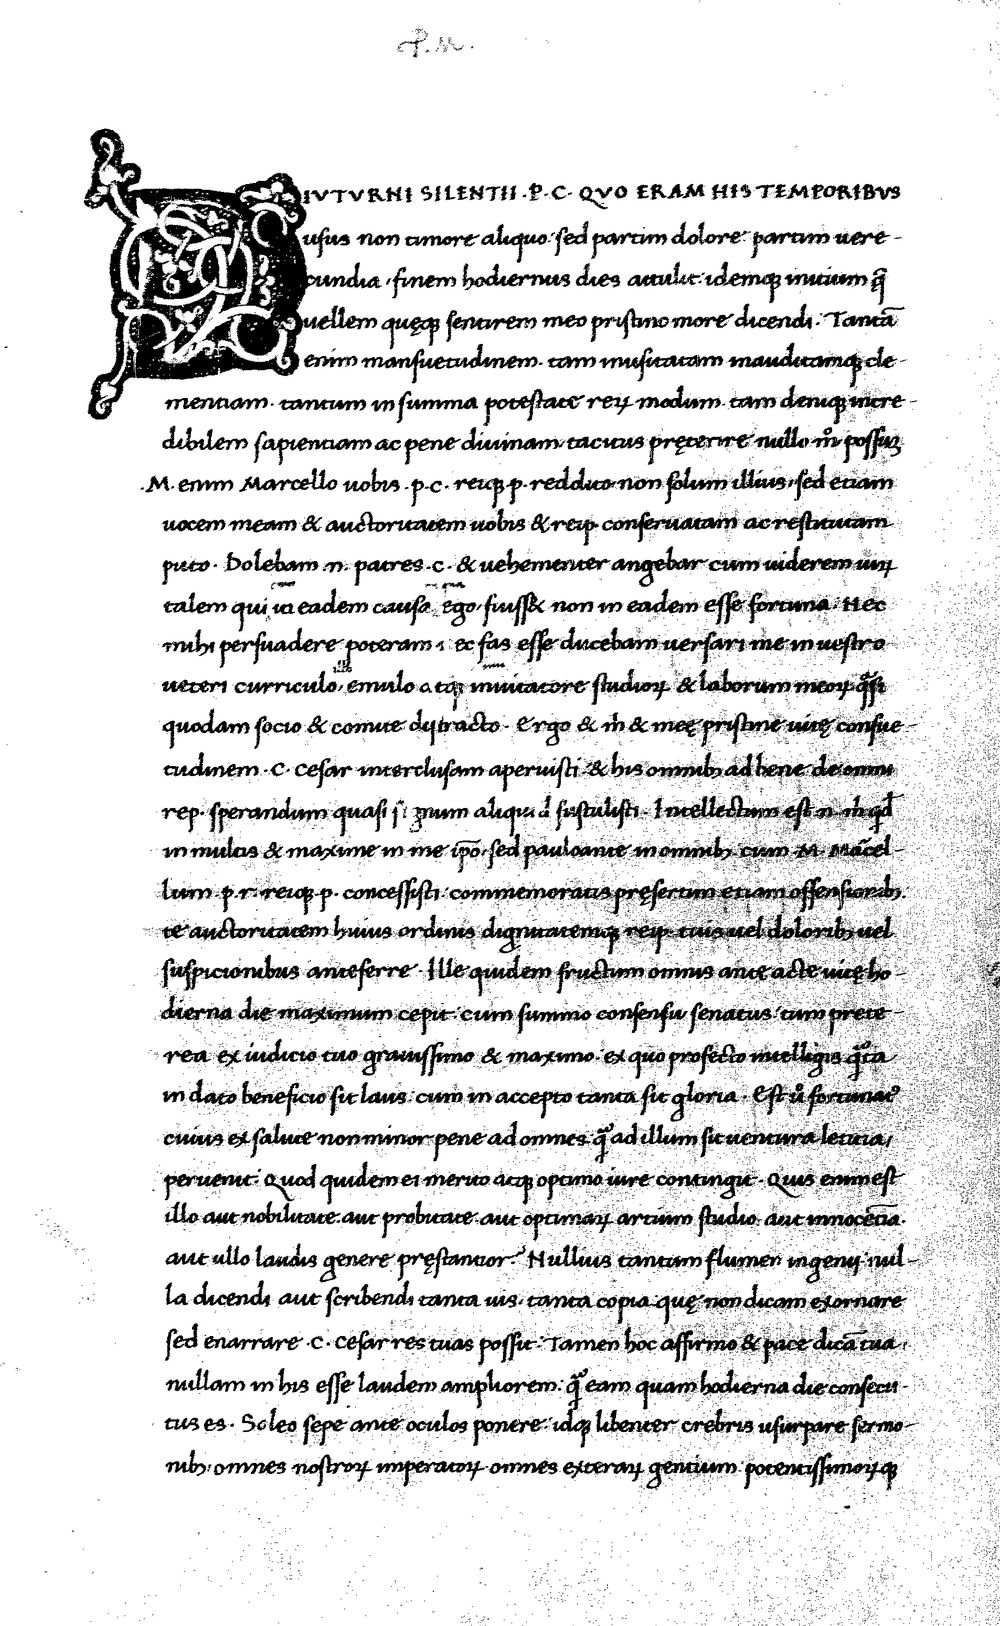 P. M.
DIVTVRNI SILENTII · P · C · QVO ERAM HIS TEMPORIBVS
usus non timore aliquo sed partim dolore partim uere-
cundia finem hodiernus dies attulit idemq; initium q̃
uellem quęq; sentirem meo pristino more dicendi. Tantā
enim mansuetudinem tam inusitatam inauditamq; cle-
mentiam tantum in summa potestate reꝝ modum tam deniq; incre-
dibilem sapientiam ac pene diuinam tacitus pręterire nullo m̊ possuꝫ
.M. enim Marcello uobis .p.c. reiq; p. reddito non solum illius sed etiam
uocem meam & auctoritatem uobis & reip. conseruatam ac restitutam
puto. Dolebam .n. patres .c. & uehementer angebar cum uiderem uiꝝ
talem qui in eadem causa ego fuiss& non in eadem esse fortuna. Nec
mihi persuadere poteram, ec fas esse ducebam uersari me in uestro
ueteri curriculo, emulo atq; imitatore studioꝝ & laborum meoꝝ q̃si
quodam socio & comite distracto. Ergo & m̊ & meę pristine uitę consue-
tudinem .C. Cesar interclusam aperuisti & his omnibꝫ ad bene de omni
rep. sperandum quasi gnum aliqu sustulisti. Intellectum est .n. m̊ qđ
in multis & maxime in me ip̄o, sed paulo ante in omnibꝫ cum M. Mācel-
lum p.r. reiq; p. concessisti commemoratis pręsertim etiam offensionibꝫ.
te auctoritatem huius ordinis dignitatemq; reip. tuis uel doloribꝫ uel
suspicionibus anteferre. Ille quidem fructum omnis ante acte uitę ho-
dierna die maximum cepit cum summo consensu senatus tum prete-
rea ex iudicio tuo grauissimo & maximo ex quo profecto intelligis q̃ta
in dato beneficio sit laus cum in accepto tanta sit gloria. Est ů fortunat9
cuius ex salute non minor pene ad omnes q̃ ad illum sit uentura letitia,
peruenit. Quod quidem ei merito atq; optimo iure contingit. Quis enim est
illo aut nobilitate aut probitate aut optimaꝝ artium studio aut innocētia
aut ullo laudis genere pręstantior? Nullius tantum flumen ingenij nul-
la dicendi aut scribendi tanta uis, tanta copia quę non dicam exornare
sed enarrare .C. Cesar res tuas possit. Tamen hoc affirmo & pace dicā tua,
nullam in his esse laudem ampliorem q̃ eam quam hodierna die consecu-
tus es. Soleo sepe ante oculos ponere idq; libenter crebris usurpare sermo-
nibꝫ omnes nostroꝝ imperatoꝝ omnes exteraꝝ gentium potentissimoꝝq;